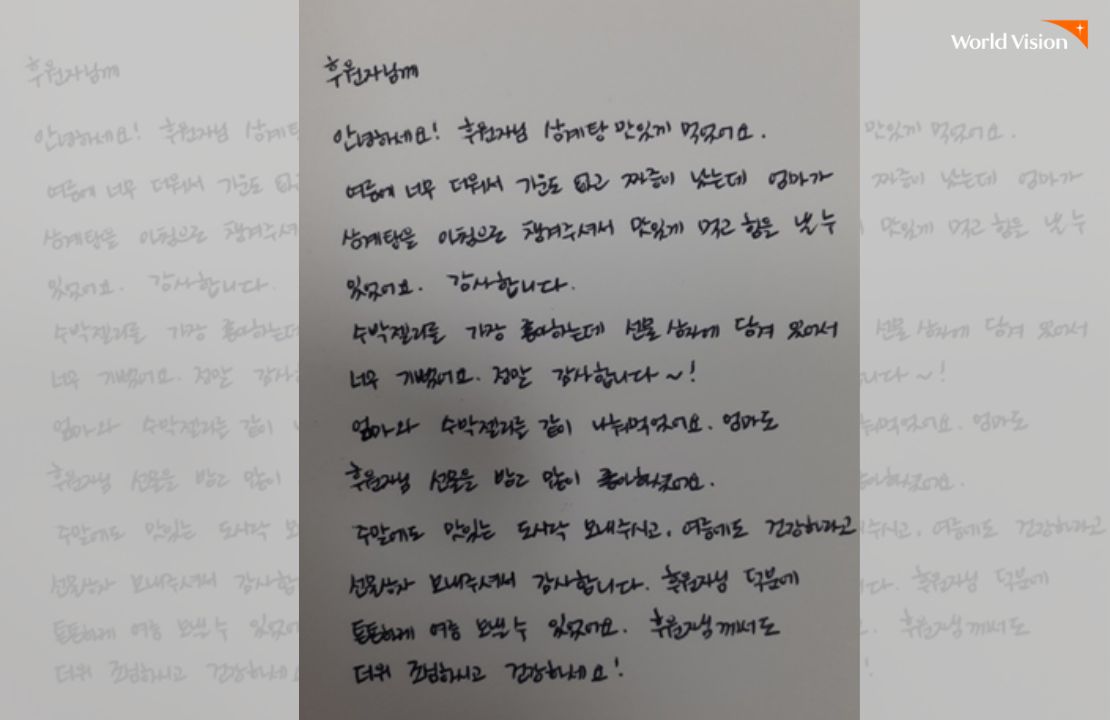 World Vision
후원자님께
안녕하세요! 후원자님 삼계탕 맛있게 먹었어요.
여름에 너무 더워서 기운도 없고 짜증이 났는데 엄마가
삼계탕을 아침으로 챙겨주셔서 맛있게 먹고 힘을 낼 수
있었어요. 감사합니다.
수박젤리를 가장 좋아하는데 선물상자에 담겨 있어서
너무 기뻤어요. 정말 감사합니다~!
엄마와 수박젤리를 같이 나눠먹었어요. 엄마도
후원자님 선물을 받고 많이 좋아하셨어요.
주말에도 맛있는 도시락 보내주시고, 여름에도 건강하라고
선물상자 보내주셔서 감사합니다. 후원자님 덕분에
튼튼하게 여름 보낼 수 있었어요. 후원자님께서도
더위 조심하시고 건강하세요!